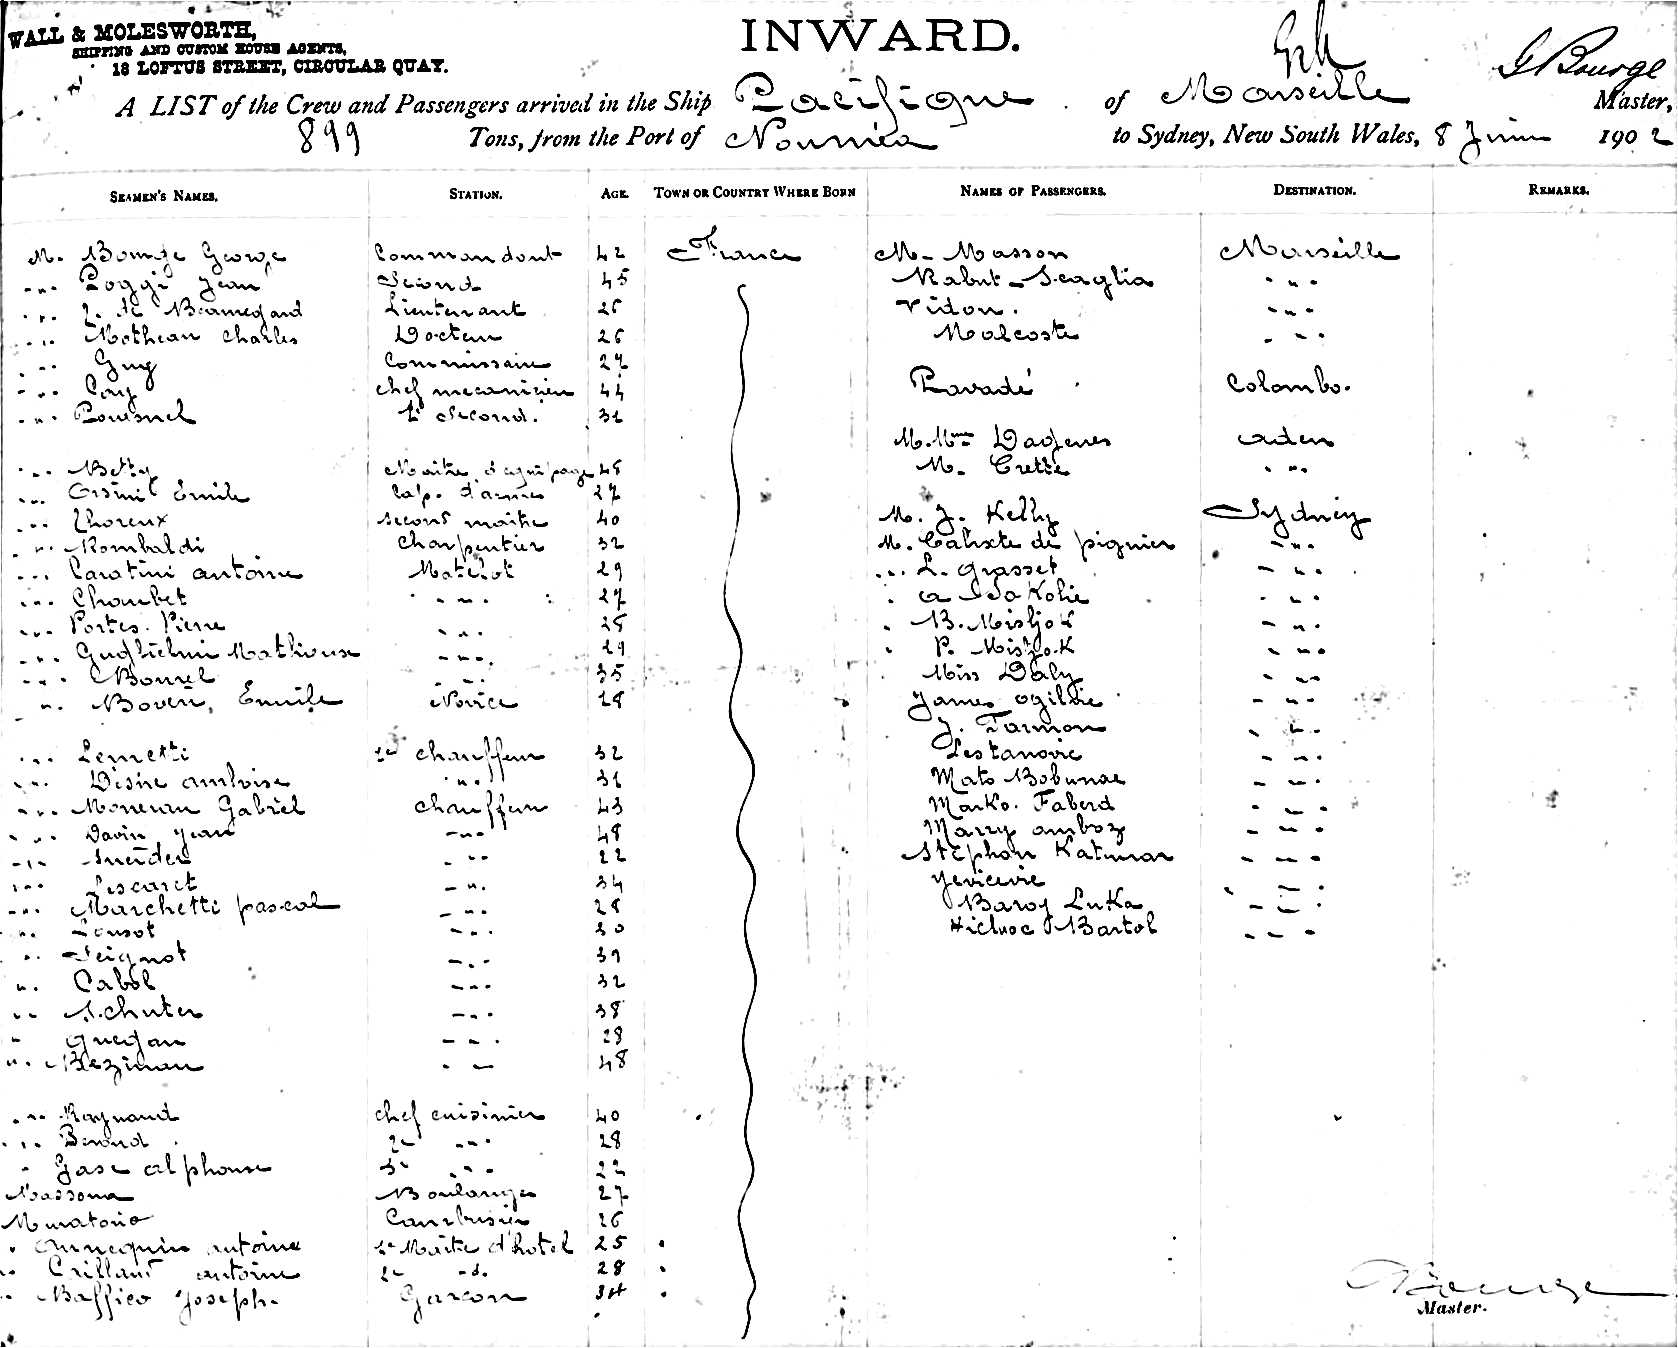 WALL & MOLESWORTH,
SHIPPING AND CUSTOM HOUSE AGENTS,
18 LOFTUS STREET, CIRCULAR QUAY.
INWARD.
G Bourge
A LIST of the Crew and Passengers arrived in the Ship Pacifique of Marseille Master,
899 Tons, from the Port of Nouméa to Sydney, New South Wales, 8 Juin 1902
SEAMEN'S NAMES. STATION. AGE. TOWN OR COUNTRY WHERE BORN NAMES OF PASSENGERS. DESTINATION. REMARKS.
M. Bourge George Commandant 42 France M. Masson Marseille
" Poggi Jean Second 45 Rabut - Scaglia "
" de Beauregard Lieutenant 26 Vidon. "
" Motheau Charles Docteur 26 Malcoste "
" Guy Commissaire 27
" Cory chef mecanicien 44 Pavadé Colombo.
" Pouesnel Second. 32
M. Mme Dagenes aden
" Betty Maitre d'equipage 48 M. Crette "
" Orsini Emile Cap. d'armes 27
" Thoreux second maitre 40 M. J. Kelly Sydney
" Rombaldi Charpentier 32 M. Calixte de pignier "
" Caratini antoine Matelot 29 " L. Grasset "
" Choubet " 27 "
" Portes. Pierre " 28 B. Misljok "
" Guglielmi Mathieux " 29 P. Misljok "
" Bourrel " 35 Miss Daly "
" Emile Novice 18 James Ogilvie "
J. Farmon "
" Lemetti chauffeur 32 Lestanovic "
" Disne ambroise " 31 Mato "
" Gabriel chauffeur 43 Marko. Faberd "
" Davin Jean " 48 Marry "
" Sneider " 22 Stephan "
" Lescaret " 34 Jevicevic "
" Marchetti pascal " 28 Baroj Luka "
" " 30 Bartol "
" Seignot " 39
" Cabol " 32
" Schuter " 38
" Guegan " 28
" " 48
" Raynaud chef cuisinier 40
" Beraud 2e " 28
" Gase alphonse 3e " 22
Massona Boulanger 27
Muratorio Cambusier 26
" Annequin antoine 1er Maitre d'hotel 25
" Crillaud antoine 2e -d. 28
" Baffico Joseph. Garcon 34
Bourge
Master.